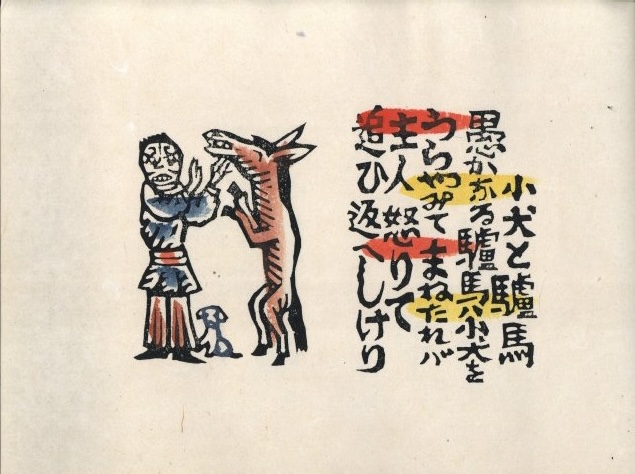 小犬と驢馬
愚かなる驢馬ハ小犬を
うらやみてまねたれバ
主人怒りて
追ひ返へしけり